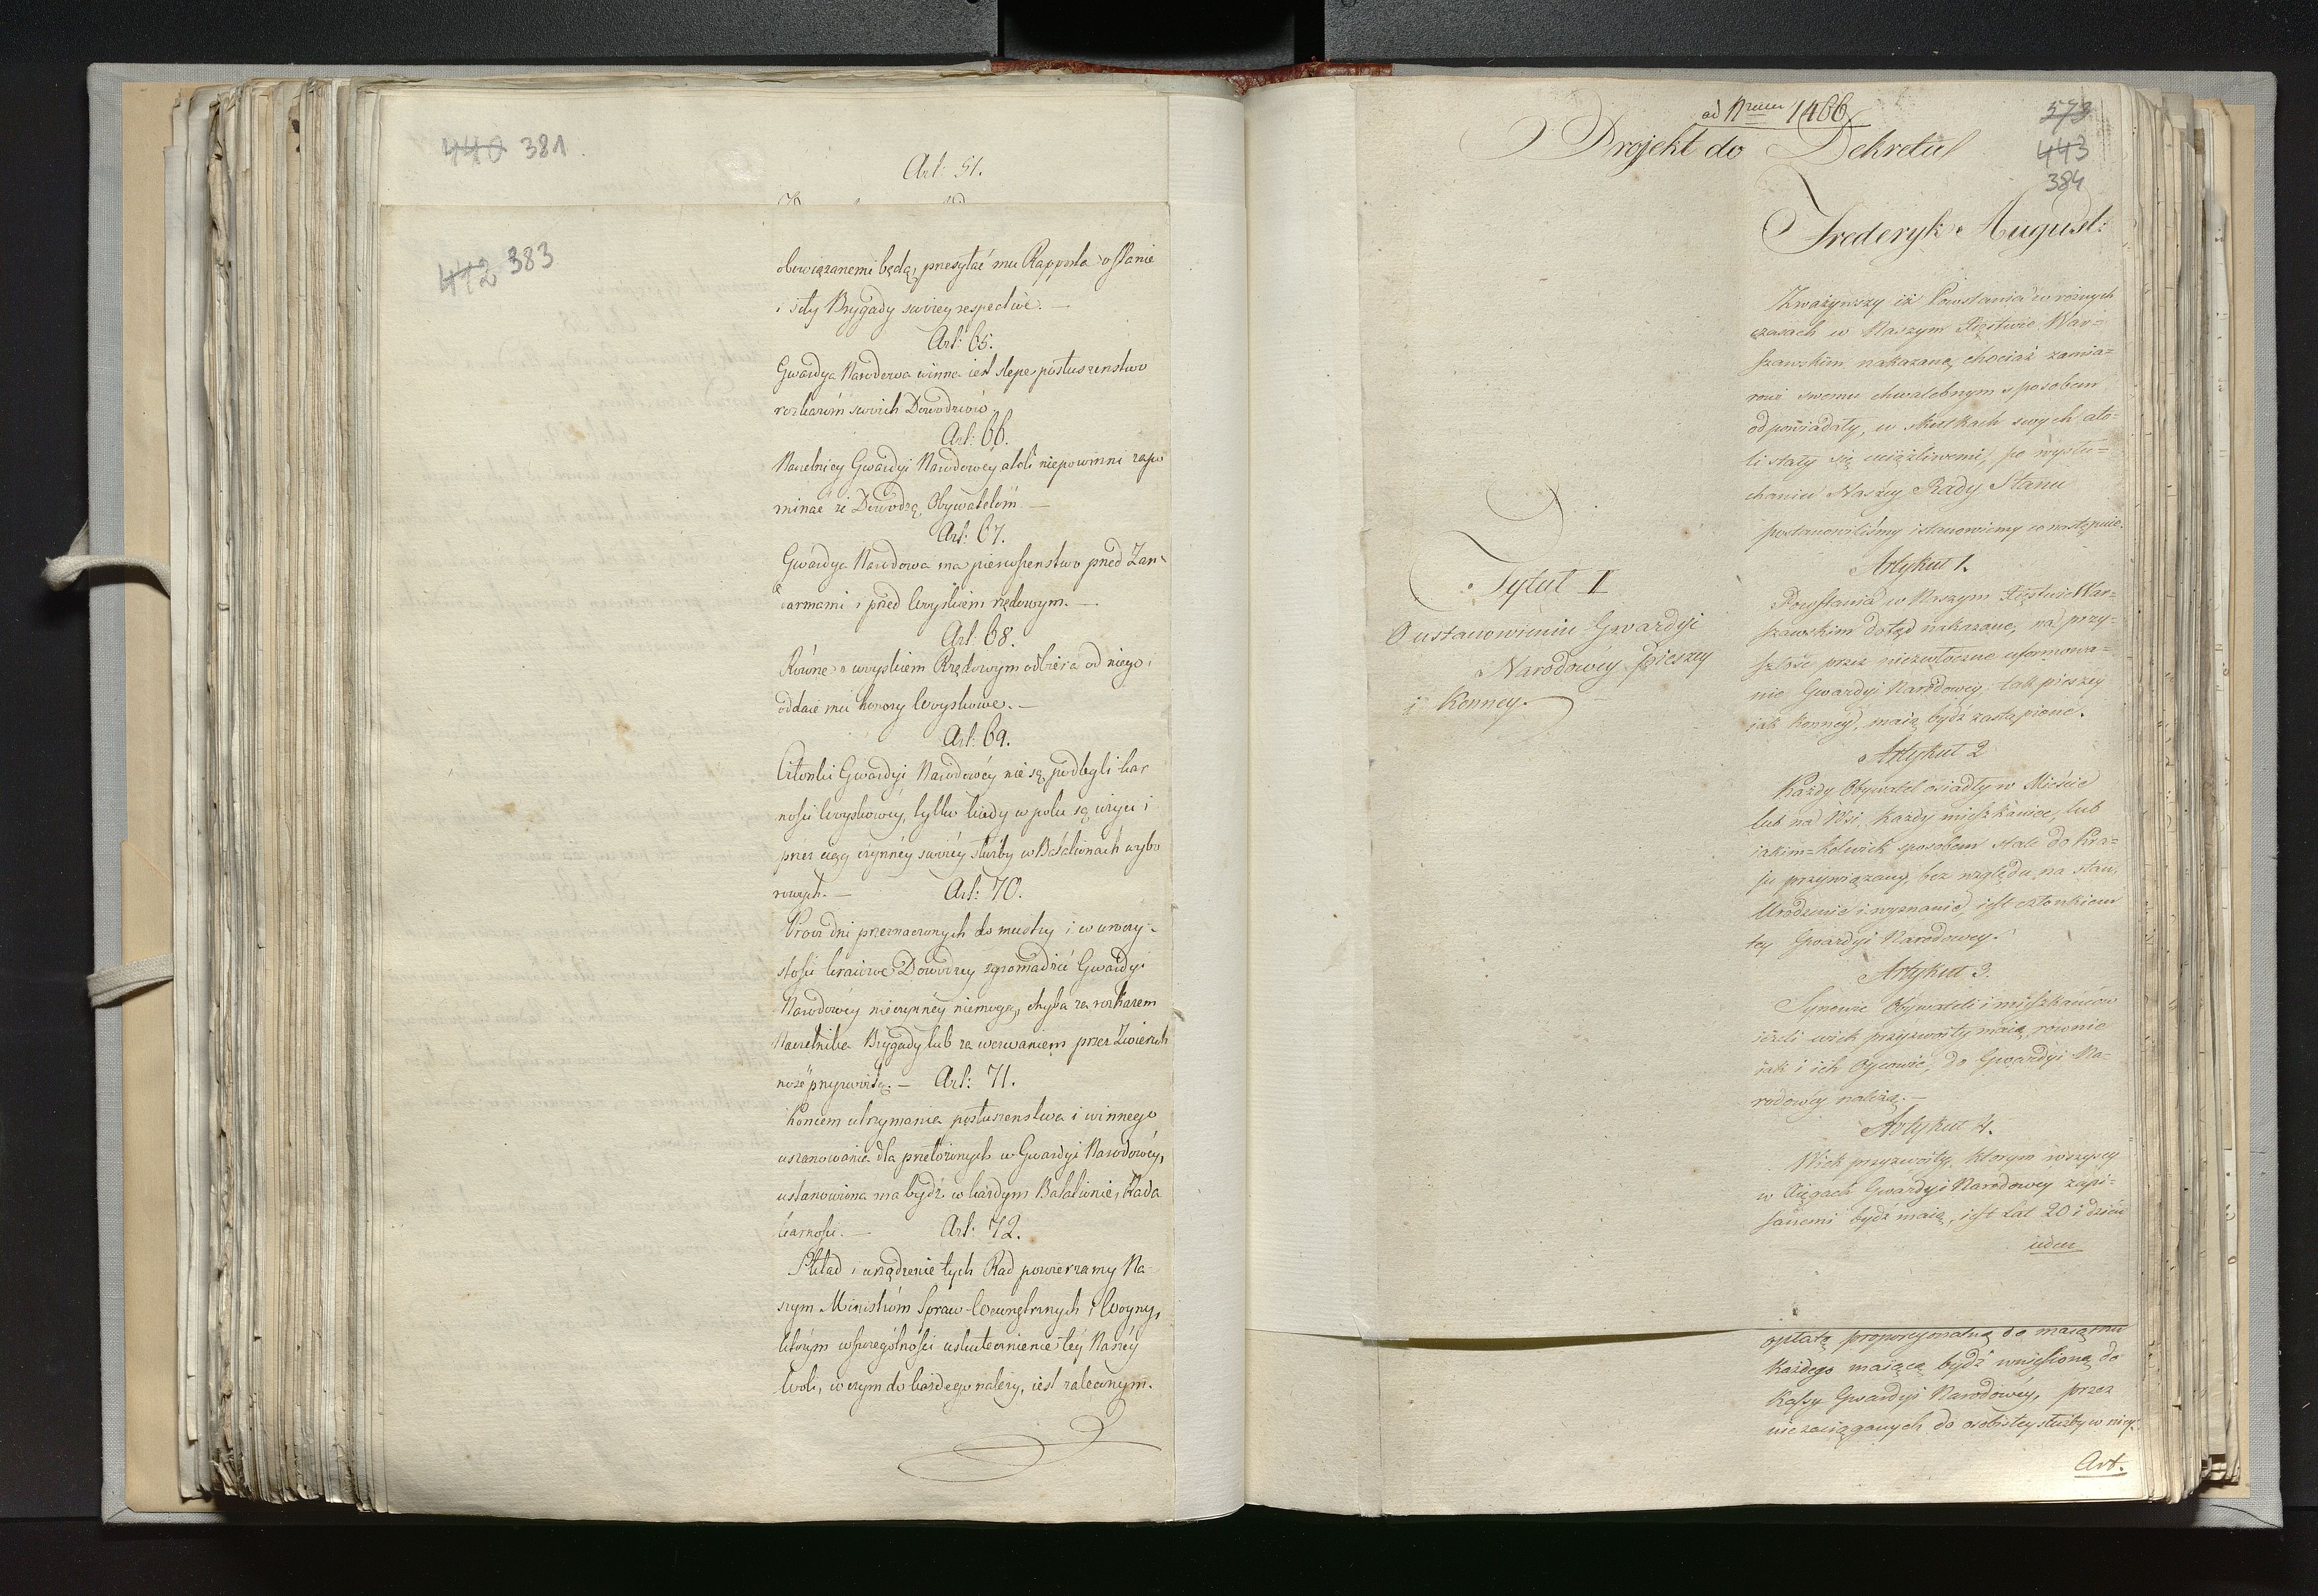 440 381
Art: 51.
412 383
obowiązanemi będą, przesyłać mu Rapporta o stanie
i siły Brygady swoiey respective. —
Art: 65.
Gwardya Narodowa winna iest slepe posłuszenstwo
rozkazóm swoich Dowodzców
Art: 66.
Naczelnicy Gwardyi Narodowéy atoli niepowinni zapo
minać że Dowodzą Obywatelóm —
Art: 67.
Gwardya Narodowa ma pierwszenstwo przed Żan-
darmami i przed Woyskiem rzędowym. —
Art: 68.
Równie z woyskiem Rzędowym odbiera od niego i
oddaie mu honory Woyskowe. —
Art: 69.
Członki Gwardyi Narodowéy nie są podlegli kar
nosci Woyskowéy, tylko kiedy w polu są użyci i
przez ciąg czynnéy swoiéy służby w Batalionach wybo
rowych. — Art: 70.
Procz dni przeznaczonych do mustry i w uroczy-
stosci kraiowe Dowodzcy zgromadzić Gwardyi
Narodowéy nieczynnéy niemogą, chyba za rozkazem
Naczelnika Brygady lub za wezwaniem przez Zwierzch
ność przyzwoitą. — Art: 71.
Koncem utrzymania posłuszenstwa i winnego
uszanowania dla przełożonych w Gwardyi Narodowéy,
ustanowiona ma bydź w każdym Batalionie, Rada
karnosci. — Art: 72.
Skład i urządzenie tych Rad powierzamy Na-
szym Ministróm Spraw Wewnętrznych i Woyny,
którym wszczególnosci uskutecznienie téy Naszéy
Woli, w czym do każdego należy, iest zaleconym.
ad Nrum 1486
573
443
384
Projekt do Dekretu
Frederyk August:
Zważywszy iż Powstania w różnych
czasach w Naszym Xięstwie War-
szawskim nakazane, chociaż zamia=
rowi swemu chwalebnym sposobem
odpowiadały, w skutkach swych ato-
li stały się uciążliwemi, po wysłu=
chaniu Naszéy Rady Stanu
postanowiliśmy i stanowiemy co następuie.
Tytuł I
O ustanowieniu Gwardyi
Narodowéy pieszey
i Konney.
Artykuł 1.
Powstania w Naszym Xięstwie War=
szawskim dotąd nakazane, na przy-
szłość przez niezwłoczne uformowa=
nie Gwardyi Narodowéy tak pieszéy
iak konney, maią bydź zastąpione.
Artykuł 2
Każdy Obywatel osiadły w Mieście
lub na Wsi, każdy mieszkaniec, lub
iakim=kolwiek sposobem stale do Kra=
ju przywiązany, bez względu na stan,
Urodzenie i wyznanie, iest członkiem
tey Gwardyi Narodowey.
Artykuł 3.
Synowie Obywateli i mieszkańców
ieżeli wiek przyzwoity maią, równie
iak i ich Oycowie, do Gwardyi Na-
rodowey należą. —
Artykuł 4.
Wiek przyzwoity, którym wszyscy
w Xięgach Gwardyi Narodowey zapi=
sanemi bydź maią, iest Lat 20 i dzień
ieden
opłatę proporcyonalną do maiątku
każdego maiącą bydź wniesioną do
Kassy Gwardyi Narodowéy, przez
nie zaciąganych do osobistey służby w niey.
Art.